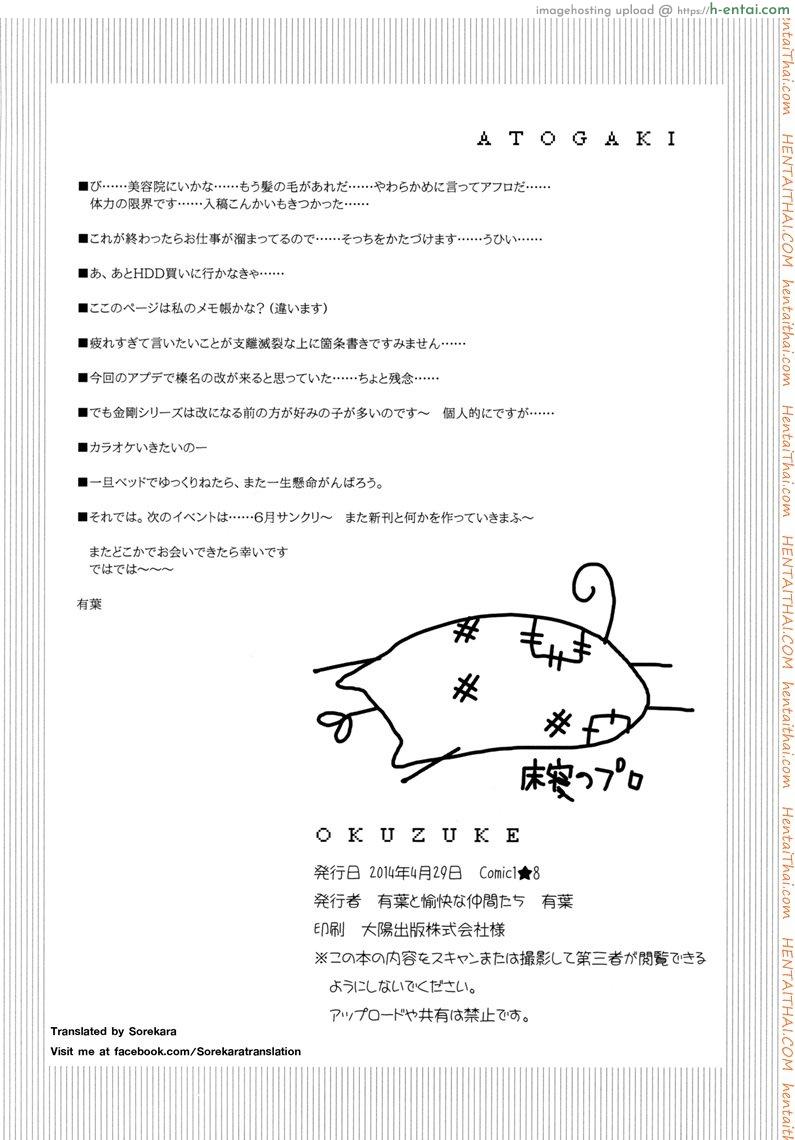 imagehosting upload @ https://h-entai.com
ATOGAKI
■び……美容院にいかな……もう髪の毛があれだ……やわらかめに言ってアフロだ……
体力の限界です……入稿こんかいもきつかった……
■これが終わったらお仕事が溜まってるので……そっちをかたづけます……うひい……
■あ、あとHDD買いに行かなきゃ……
■ここのページは私のメモ帳かな？（違います）
■疲れすぎて言いたいことが支離滅裂な上に箇条書きですみません……
■今回のアプデで榛名の改が来ると思っていた……ちょと残念……
■でも金剛シリーズは改になる前の方が好みの子が多いのです〜　個人的にですが……
■カラオケいきたいのー
■一旦ベッドでゆっくりねたら、また一生懸命がんばろう。
■それでは。次のイベントは……6月サンクリ〜　また新刊と何かを作っていきまふ〜
またどこかでお会いできたら幸いです
ではでは〜〜〜
有葉
床寝のプロ
OKUZUKE
発行日 2014年4月29日　Comic1★8
発行者　有葉と愉快な仲間たち　有葉
印刷　大陽出版株式会社様
※この本の内容をスキャンまたは撮影して第三者が閲覧できる
ようにしないでください。
アップロードや共有は禁止です。
Translated by Sorekara
Visit me at facebook.com/Sorekaratranslation
entaiThai.com
HENTAITHAI.COM
hentaithai.com
HentaiThai.com
HENTAITHAI.COM
hentaithai.com
HentaiThai.com
HENTAITHAI.COM
hentaith